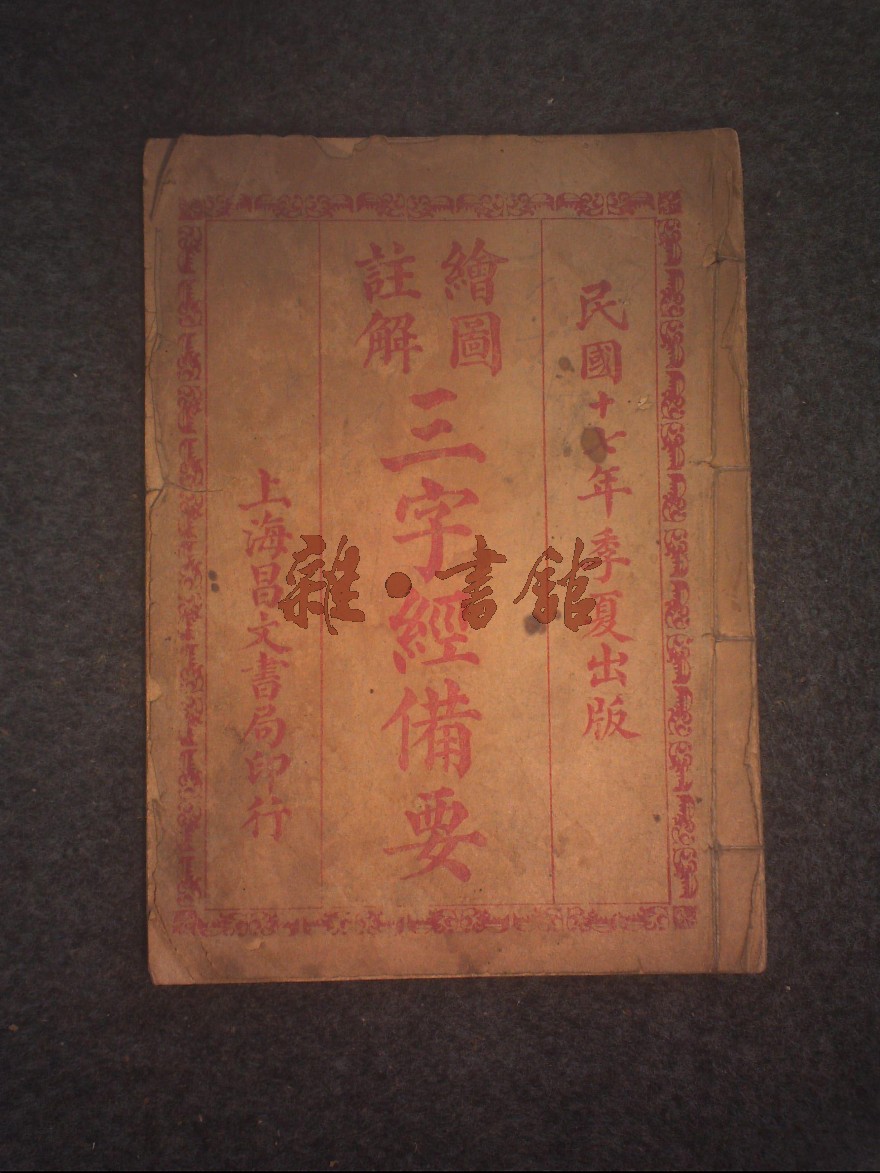 民國十七年季夏出版
繪圖
註解
三字經備要
上海昌文書局印行
雜·書館